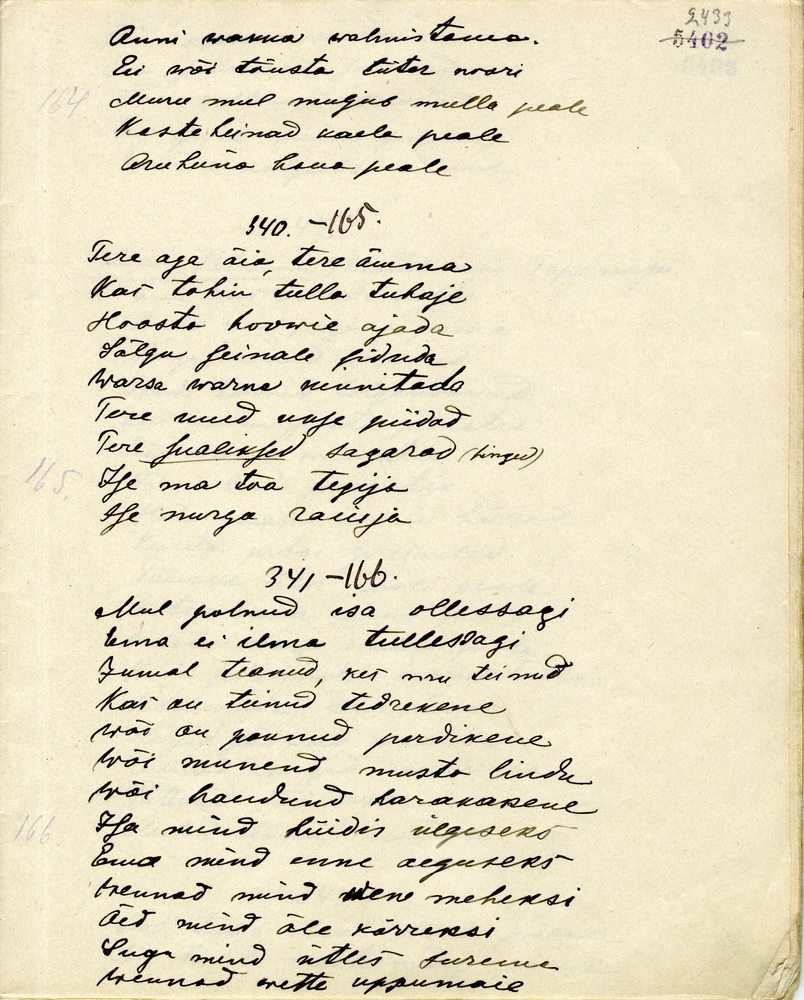 2433
5402
Anni wakka walmistama.
Ei wõi tõusta tüter noori
164.
Muru mul mujub mulla peale
Kasteheinad kaela peale
Aruheina haua peale
340. -165.
Tere aga äia, tere ämma
Kas tohin tulla tuhaje
Hoosta hoowie ajada
Sälgu seinale siduda
Warsa warna kinnitada
Tere uued ukse piidad
Tere sualiksed sagarad (hinged)
165.
Ise ma toa tegija
Ise nurga raiuja
341 -166.
Mul polnud isa ollessagi
Ema ei ilma tullessagi
Jumal teanud, kes mu teinud
Kas on teinud tedrekene
Wõi on pannud pardikene
Wõi munend musta lindu
Wõi haudund harakakene
166.
Isa mind hüidis ülgeseks
Ema mind enne aeguseks
Wennad mind wene meheksi
Õed mind õle kõrreksi
Sugu mind ütles surema
Wennad wette uppumaie